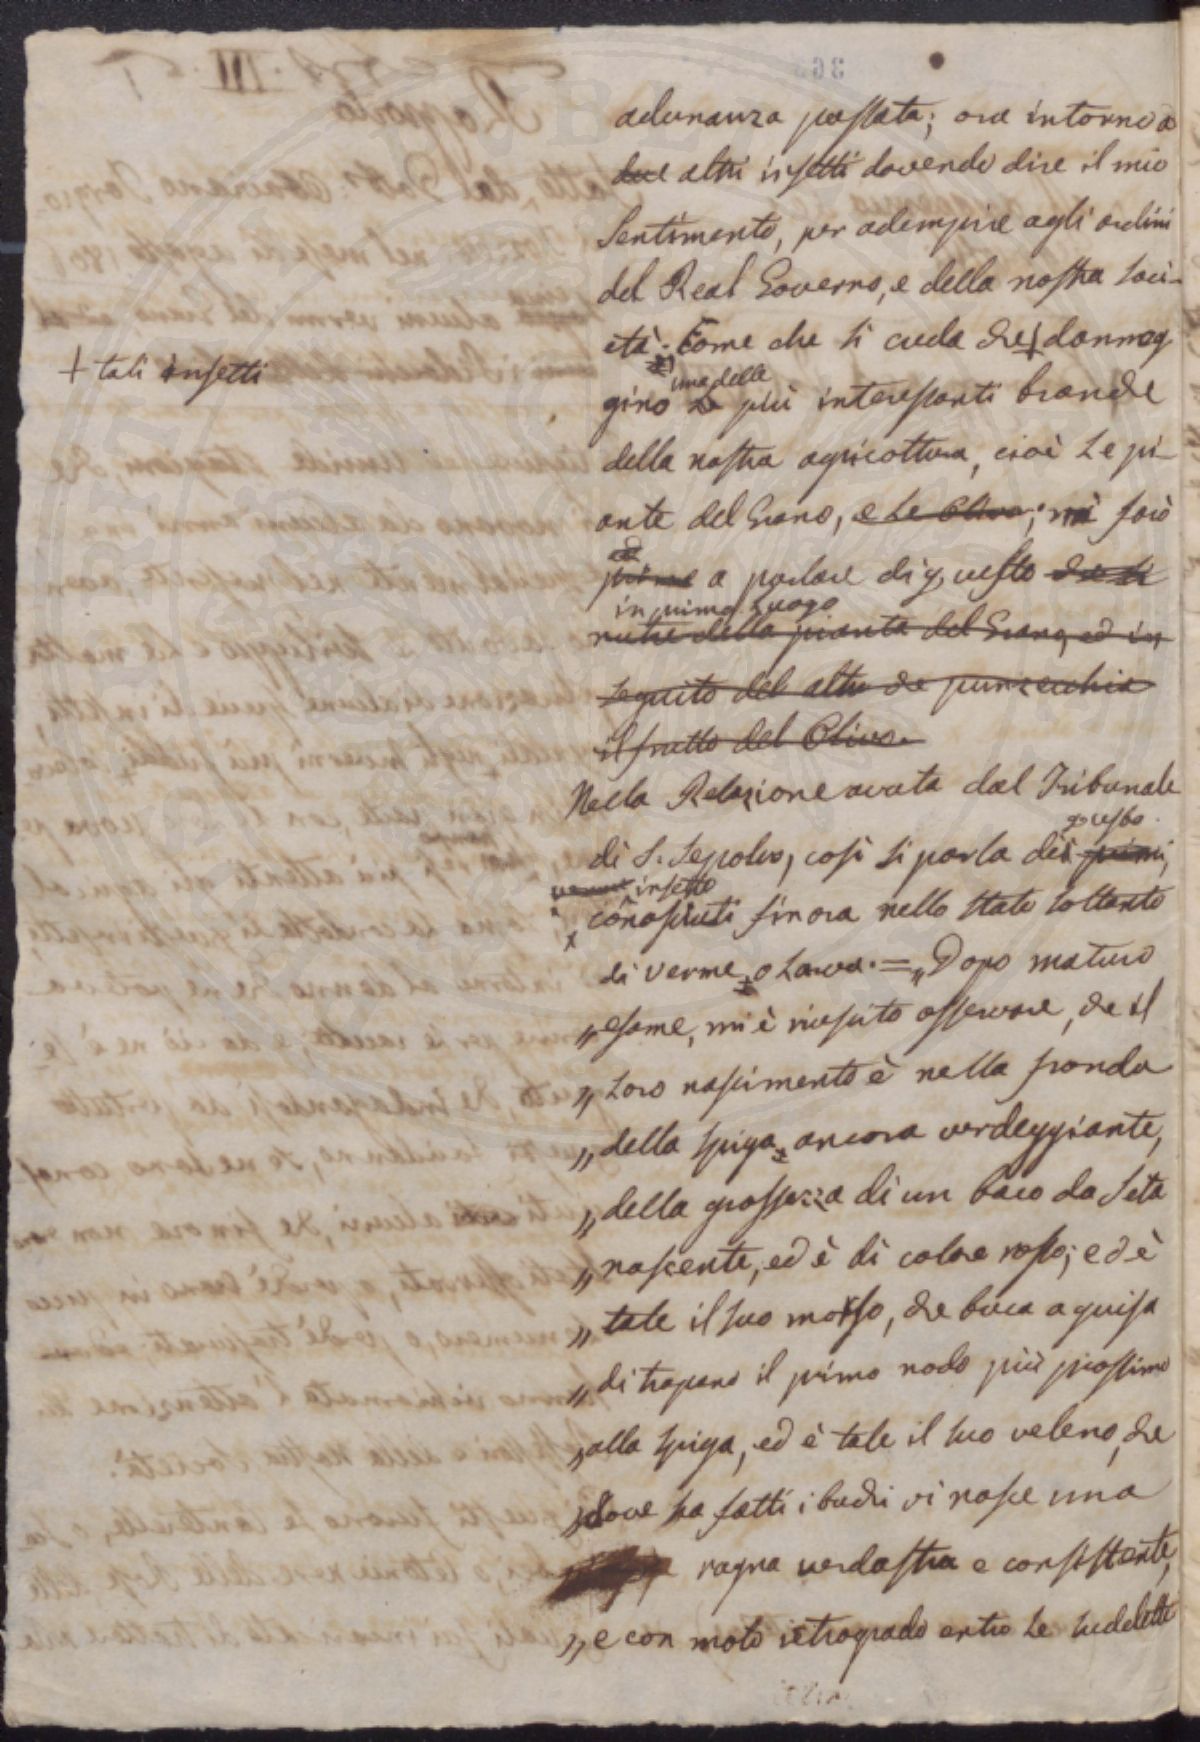 adunanza passata; ora intorno a
due altri insetti dovendo dire il mio
Sentimento, per adempire agli ordini
del Real Governo, e della nostra Soci-
età. Come che si creda che + danneg
+ tali insetti
una delle
gino Le più interessanti branche
della nostra agricoltura, cioè Le pi-
ante del Grano, e Le Olive; mi farò
prima a parlare di questo che si
in primo Luogo
nutre della pianta del Grano, ed in
Seguito del altro che punzecchia
il frutto del Olivo.
Nella Relazione avuta dal Tribunale
questo
di S. Sepolcro, così si parla dei primi,
insetto
conosciuti finora nello stato soltanto
di verme, o Larva. = „ Dopo maturo
„ esame, mi è riuscito osservare, che il
„ Loro nascimento è nella fronda
„ della spiga ancora verdeggiante,
„ della grossezza di un baco da Seta
„ nascente, ed è di colore rosso; ed è
„ tale il suo morso, che buca a guisa
„ di trapano il primo nodo più prossimo
„ alla spiga, ed è tale il suo veleno, che
„ dove ha fatti i buchi vi nasce una
ragna verdastra e consistente,
„ e con moto retrogrado entro Le suddette